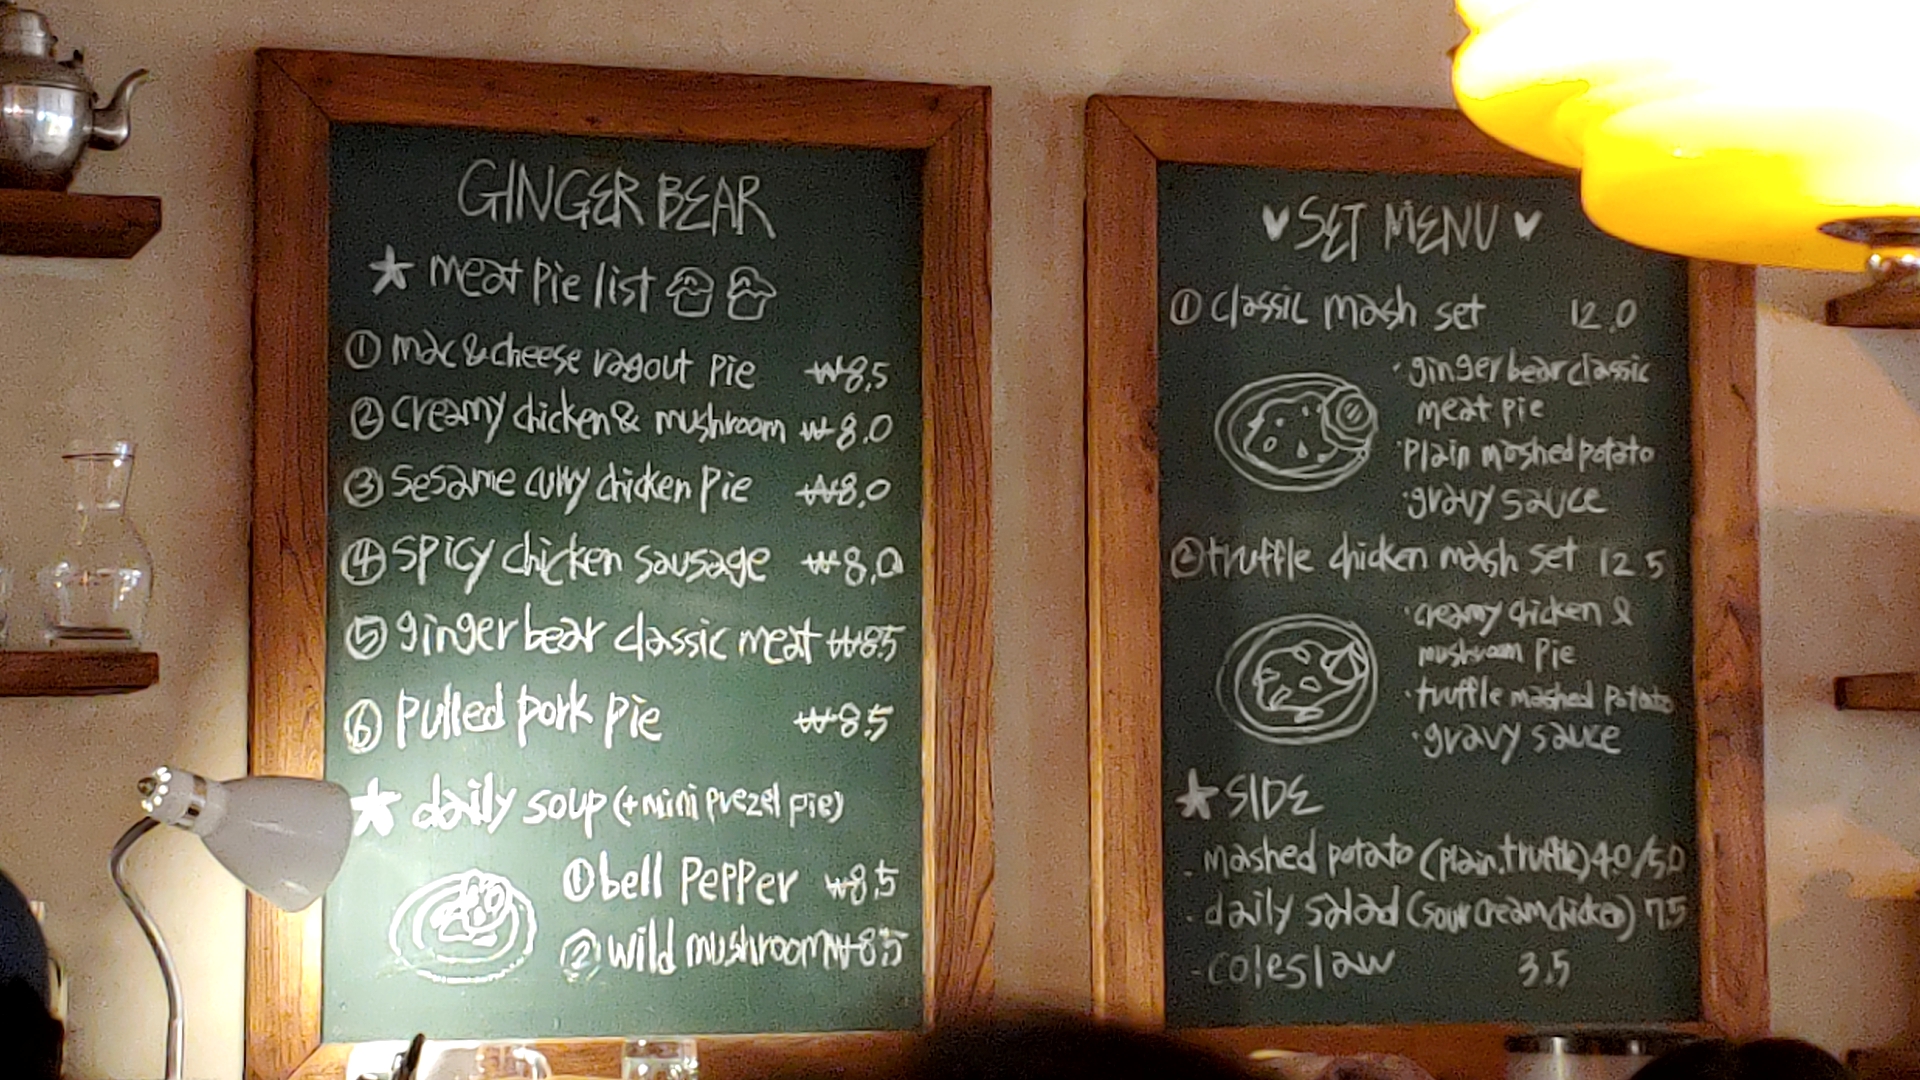 GINGER BEAR
★ meat pie list
① mac & cheese ragout pie ₩8.5
② creamy chicken & mushroom ₩8.0
③ sesame curry chicken pie ₩8.0
④ spicy chicken sausage ₩8.0
⑤ ginger bear classic meat ₩8.5
⑥ pulled pork pie ₩8.5
★ daily soup (+mini prezel pie)
① bell pepper ₩8.5
② wild mushroom ₩8.5
♥ SET MENU ♥
① classic mash set 12.0
· ginger bear classic
meat pie
· plain mashed potato
· gravy sauce
② truffle chicken mash set 12.5
· creamy chicken &
mushroom pie
· truffle mashed potato
· gravy sauce
★ SIDE
- mashed potato (plain, truffle) 4.0/5.0
- daily salad (sour cream chicken) 7.5
- coleslaw 3.5